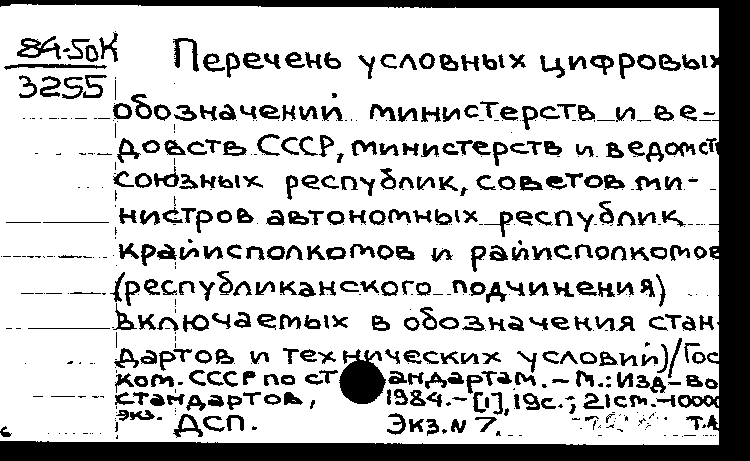 84-50К
3255
Перечень условных цифровых
обозначений министерств и ве-
домств СССР, министерств и ведомств
союзных республик, советов ми-
нистров автономных республик
крайисполкомов и райисполкомов
(республиканского подчинения)
включаемых в обозначения стан-
дартов и технических условий)/Гос
ком. СССР по стандартам. - М.: Изд-во
стандартов, 1984. - [1], 19с.; 21см. - 10000
экз. ДСП. Экз. N 7.